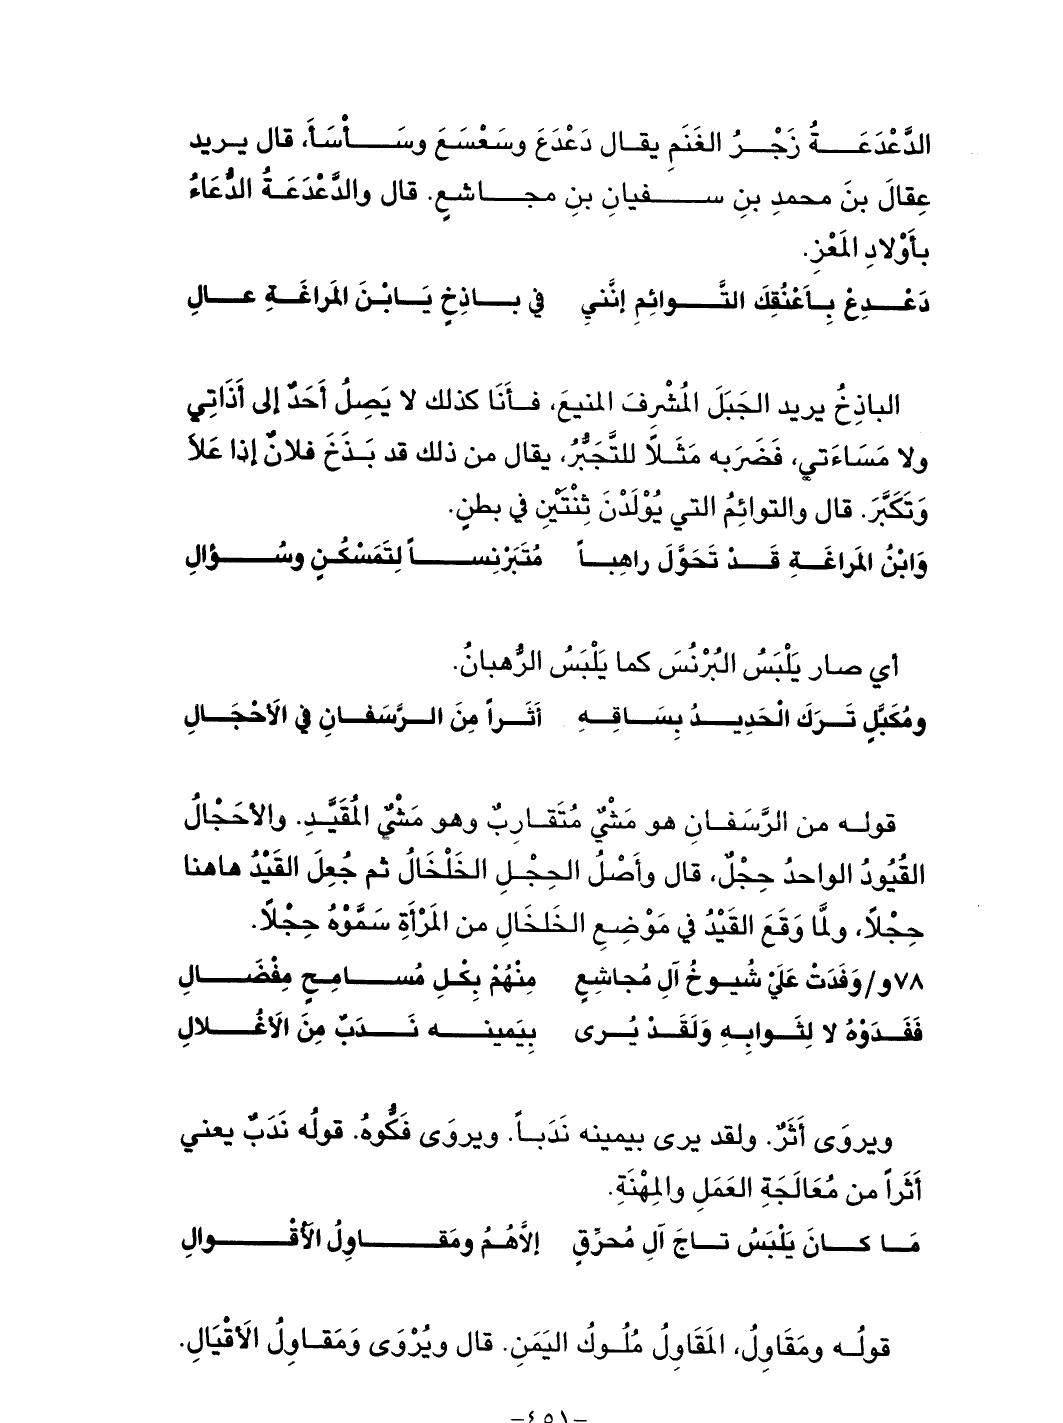 الدَّعْدَعَةُ زَجْرُ الغَنَمِ يقال دَعْدَعَ وسَعْسَعَ وسَأْسَأَ، قال يريد
عِقالَ بنَ محمدِ بنِ سفيانِ بنِ مجاشعٍ. قال والدَّعْدَعَةُ الدُّعَاءُ
بأَوْلادِ المَعْزِ.
دَعْدِعْ بِأَعْنُقِكَ التَّوائِمِ إنَّني في باذِخٍ يَابْنَ المَراغَةِ عالِ
الباذِخُ يريد الجَبَلَ المُشْرِفَ المنيعَ، فأَنَا كذلك لا يَصِلُ أَحَدٌ إلى أَذَاتِي
ولا مَسَاءَتي، فَضَرَبه مَثَلاً للتَّجَبُّرُ، يقال من ذلك قد بَذَخَ فلانٌ إذا عَلاَ
وَتَكَبَّرَ. قال والتوائِمُ التي يُوْلَدْنَ ثِنْتَيْنِ في بطنٍ.
وَابْنُ المَراغَةِ قَدْ تَحَوَّلَ راهِباً مُتَبَرْنِساً لِتَمَسْكُنٍ وسُؤالِ
أي صار يَلْبَسُ البُرْنُسَ كما يَلْبَسُ الرُّهبانُ.
ومُكَبَّلٍ تَرَكَ الْحَدِيدُ بِسَاقِهِ أَثَراً مِنَ الرَّسَفانِ في الَاحْجَالِ
قوله من الرَّسَفانِ هو مَشْيٌ مُتَقارِبٌ وهو مَشْيُ المُقَيَّدِ. والاحَجْالُ
القُيُودُ الواحدُ حِجْلٌ، قال وأَصْلُ الحِجْلِ الخَلْخَالُ ثم جُعِلَ القَيْدُ هاهنا
حِجْلاً، ولمَّا وَقَعَ القَيْدُ في مَوْضِعِ الخَلخَالِ من المَرْأَةِ سَمَّوْهُ حِجْلاً.
٧٨و/وَفَدَتْ عَلَيْ شُيوخُ آلِ مُجاشِعٍ مِنْهُمْ بِكُلِ مُسامِحٍ مِفْضَالِ
فَفَدَوْهُ لا لِثَوابِهِ وَلَقَدْ يُرى بِيَمينِه نَدَبٌ مِنَ الَاغْلالِ
ويروَى أَثَرٌ. ولقد يرى بيمينه نَدَباً. ويروَى فَكُّوهُ. قولُه نَدَبٌ يعني
أَثَراً من مُعَالَجَةِ العَمَلِ والمِهْنَةِ.
مَا كانَ يَلْبَسُ تاجَ آلِ مُحرِّقٍ إلاَّهُمُ ومَقاوِلُ الَأقْوالِ
قولُه ومَقَاوِلُ، المَقَاوِلُ مُلُوكُ اليَمَنِ. قال ويُرْوَى وَمَقاوِلُ الَاقْيَالِ.
-٤٥١-